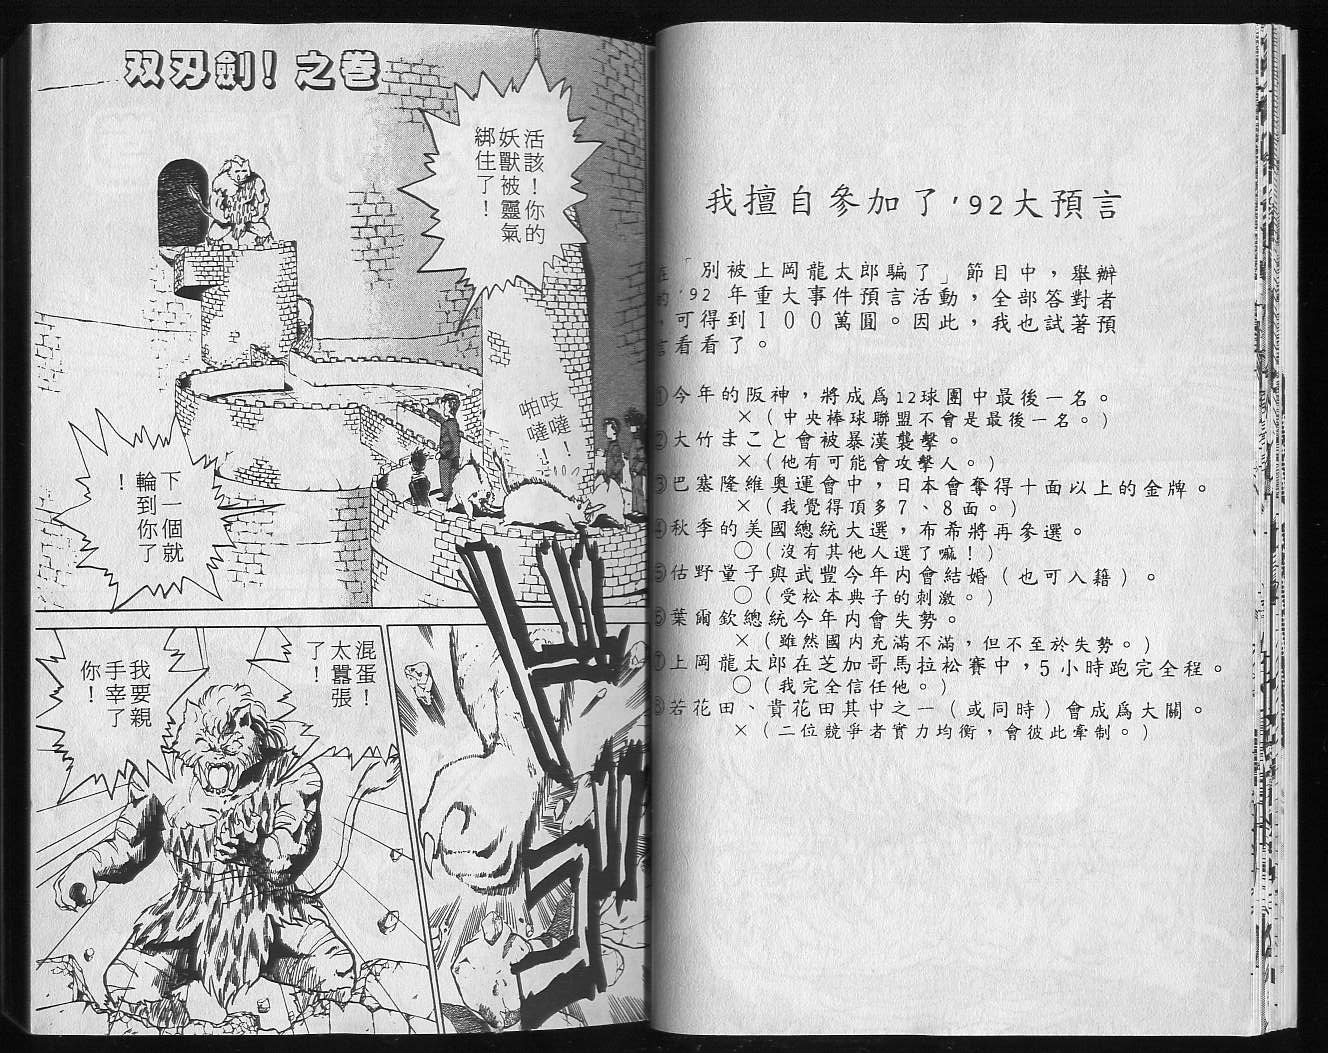 双刃劍！之卷
活該！你的
妖獸被靈氣
綁住了！
吱噠！
啪噠！
下一個就
輪到你了
！
混蛋！
太囂張
了！
我要親
手宰了
你！
我擅自參加了’92大預言
「別被上岡龍太郎騙了」節目中，舉辦
’92 年重大事件預言活動，全部答對者
可得到１００萬圓。因此，我也試著預
言看看了。
①今年的阪神，將成爲12球團中最後一名。
×（中央棒球聯盟不會是最後一名。）
②大竹まこと會被暴漢襲擊。
×（他有可能會攻擊人。）
③巴塞隆維奧運會中，日本會奪得十面以上的金牌。
×（我覺得頂多７、８面。）
④秋季的美國總統大選，布希將再參選。
○（沒有其他人選了嘛！）
⑤估野量子與武豐今年内會結婚（也可入籍）。
○（受松本典子的刺激。）
⑥葉爾欽總統今年内會失勢。
×（雖然國内充滿不滿，但不至於失勢。）
⑦上岡龍太郎在芝加哥馬拉松賽中，5小時跑完全程。
○（我完全信任他。）
⑧若花田、貴花田其中之一（或同時）會成爲大關。
×（二位競爭者實力均衡，會彼此牽制。）